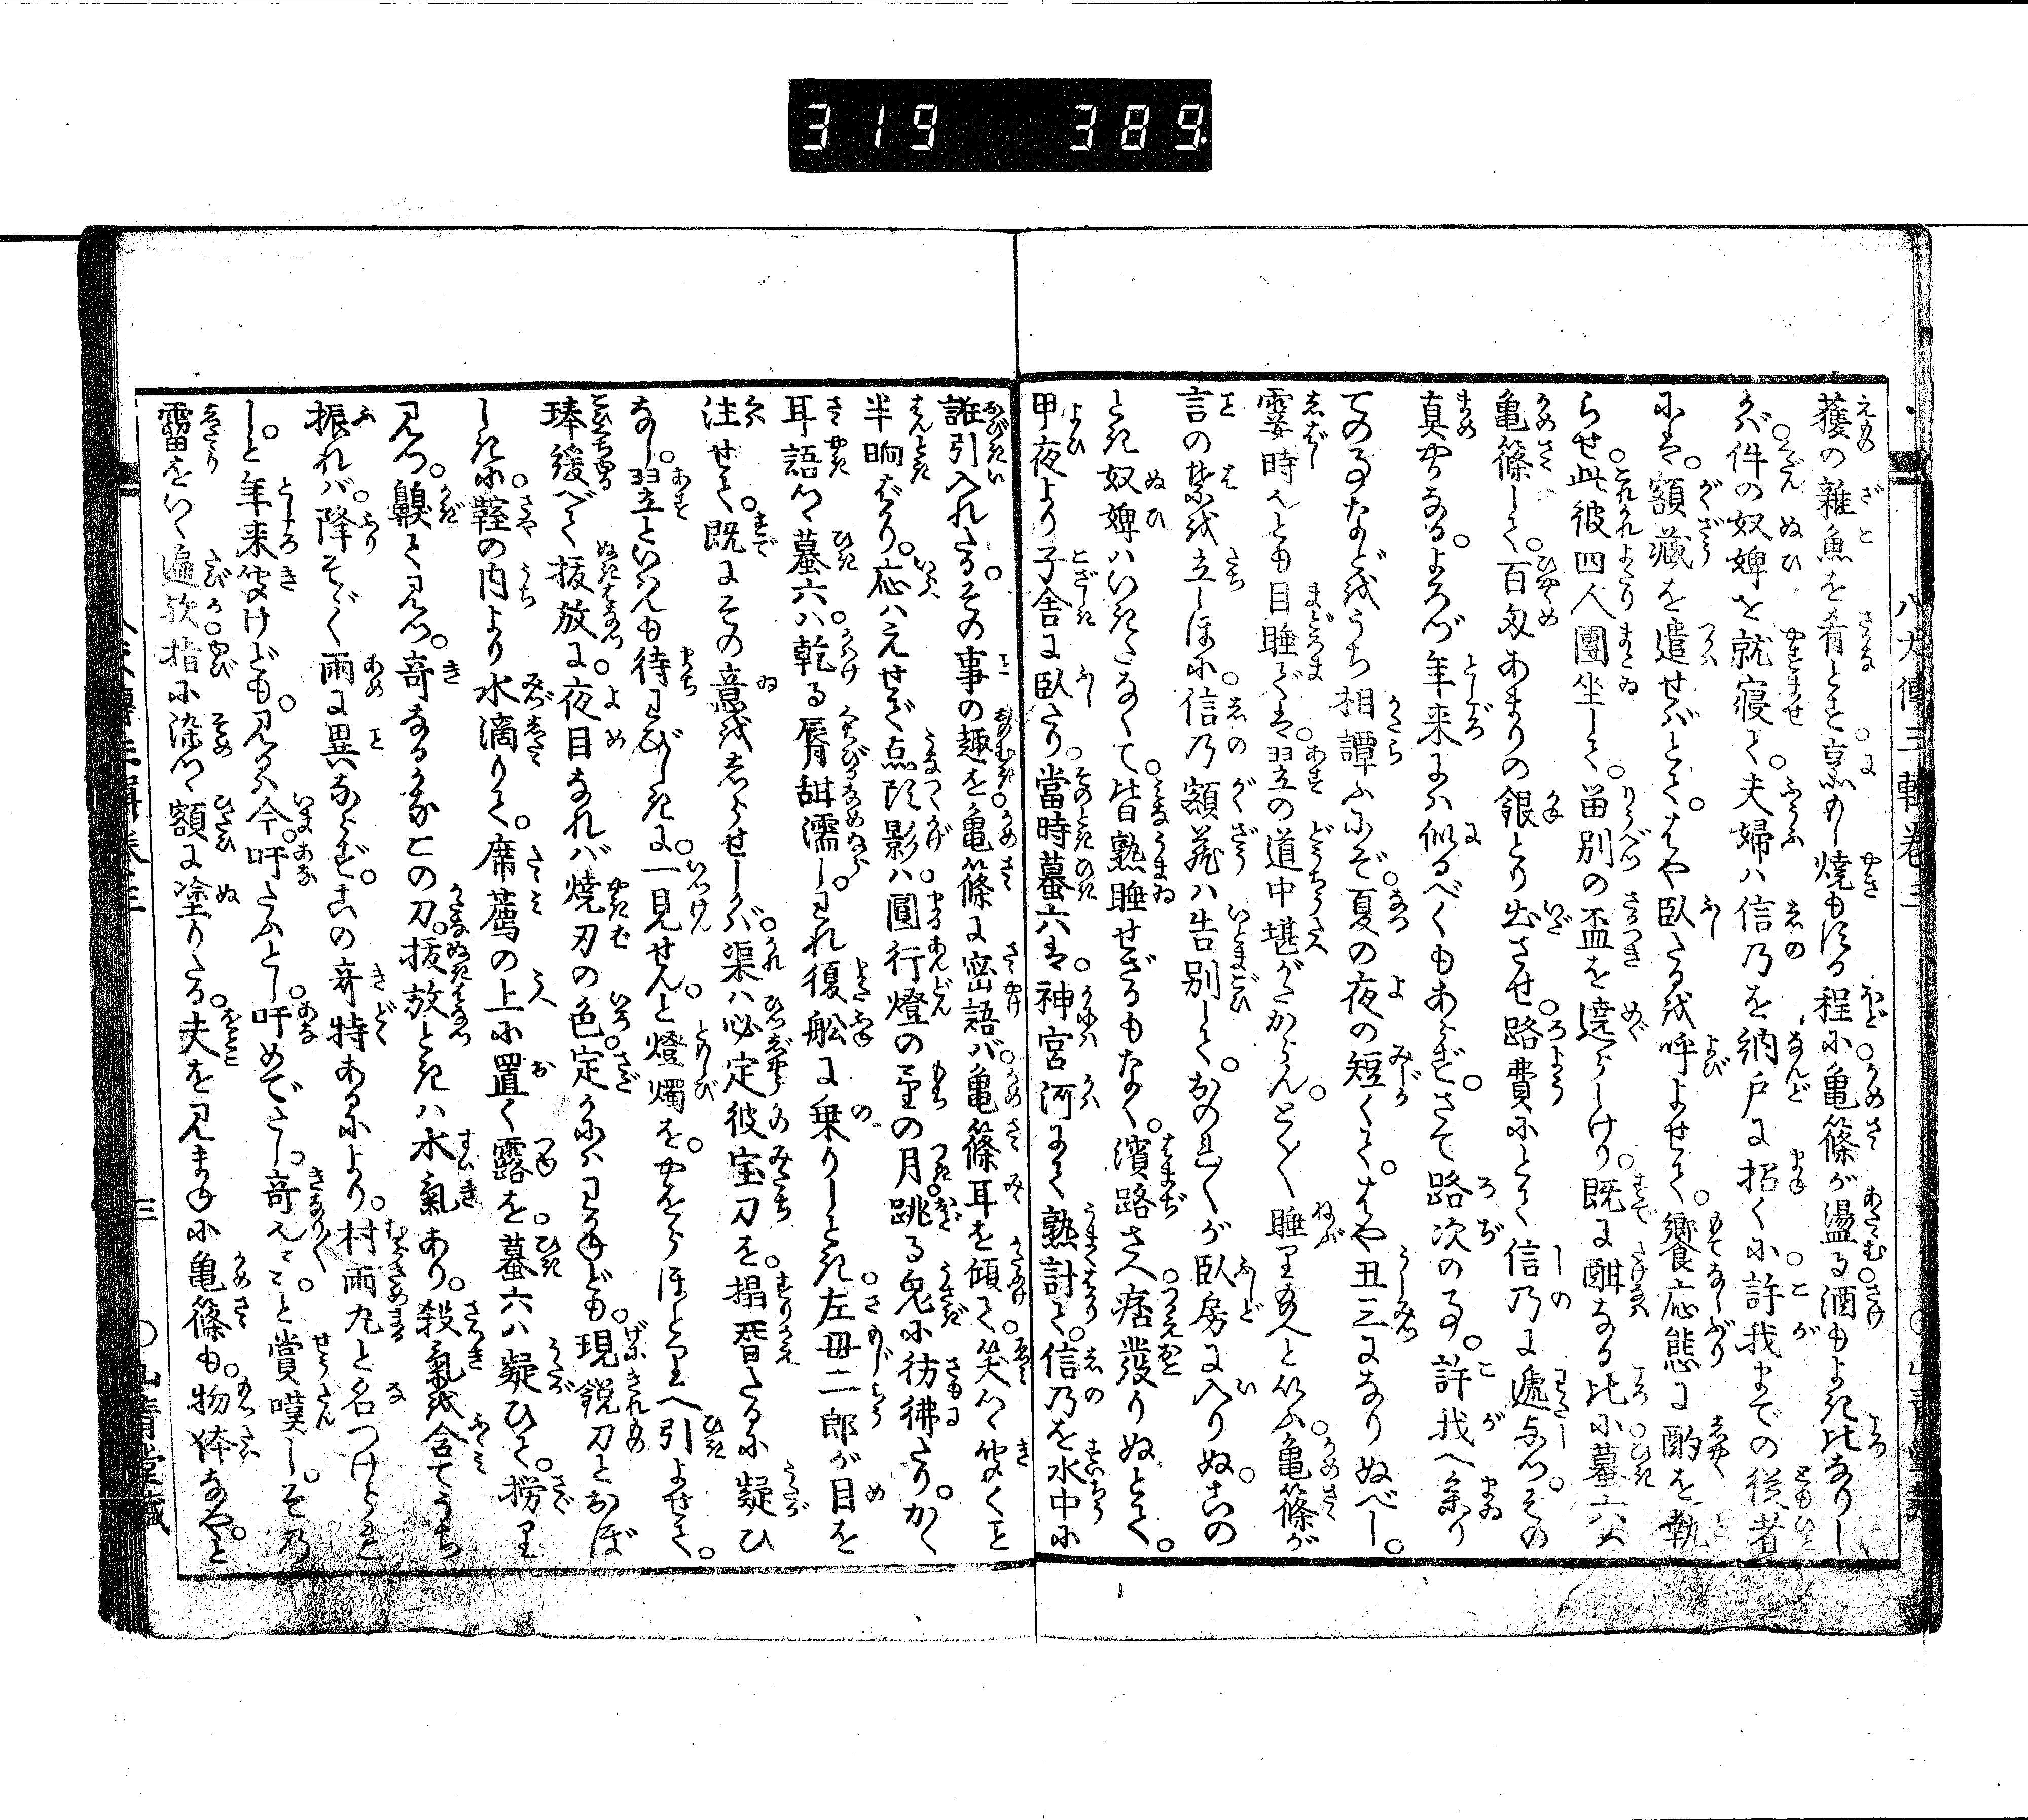 319 389
八犬傳三輯巻三
獲の雜魚を肴とす烹もし燒もする程に亀篠が盪る酒もよき比なりし
かば件の奴婢を就寢て夫婦は信乃を納戸に招くに許我までの従者
にす額藏を遣せばとてはや臥たるを呼よせて饗応態に酌を執
らせ此彼四人團坐して畄別の盃を遶らしけり既に酣なる比に蟇六は
亀篠して百匁あまりの銀とり出させ路費にとて信乃に逓与しつその
真実なるよろづ年来には似るべくもあらずさて路次の事許我へ参り
ての事などをうち相譚ふにぞ夏の夜の短くてはや丑三になりぬべし
霎時也とも目睡ずは翌の道中堪がたからんとく〳〵睡り給へといふ亀篠が
言の葉を立しほに信乃額蔵は告別しておの〳〵が臥房に入りぬこの
とき奴婢はいぎたなくて皆熟睡せざるもなく濱路さへ痞發りぬとて
甲夜より子舎に臥たり當時蟇六は神宮河にて熟計て信乃を水中に
誰引入れたるその事の趣を亀篠に密語ば亀篠耳を傾て笑つゝ聞くこと
半晌ばかり応はえせず点頭影は圓行燈の望の月跳る兔に彷彿たりかく
耳語つゝ蟇六は乾る脣舐濡しわれ復舩に乗りしとき左母二郎が目を
注せて既にその意をしらせしかば渠は必定彼宝刀を搨替たるに疑ひ
なし翌といへんも待わびしきに一見せんと燈燭をやをらほとりへ引よせて
琫緩べて抜放に夜目なれば燒刃の色定かにはわかねども現鋭刀とおぼ
しきに鞘の内より水滴りて席薦の上に置く露を蟇六は疑ひて撈り
見つ齅て見つ奇なるかなこの刀抜放ときは水氣あり殺氣を含てうち
振れば降そゝぐ雨に異ならずこの奇特あるにより村雨丸と名つけられ
しと年来聞けども見るは今吁たふとし吁めでたし奇也々々と賞嘆しその
霤をいく遍歟指に染つゝ額に塗りたる夫を見まねに亀篠も物体なやと
三
山青堂藏